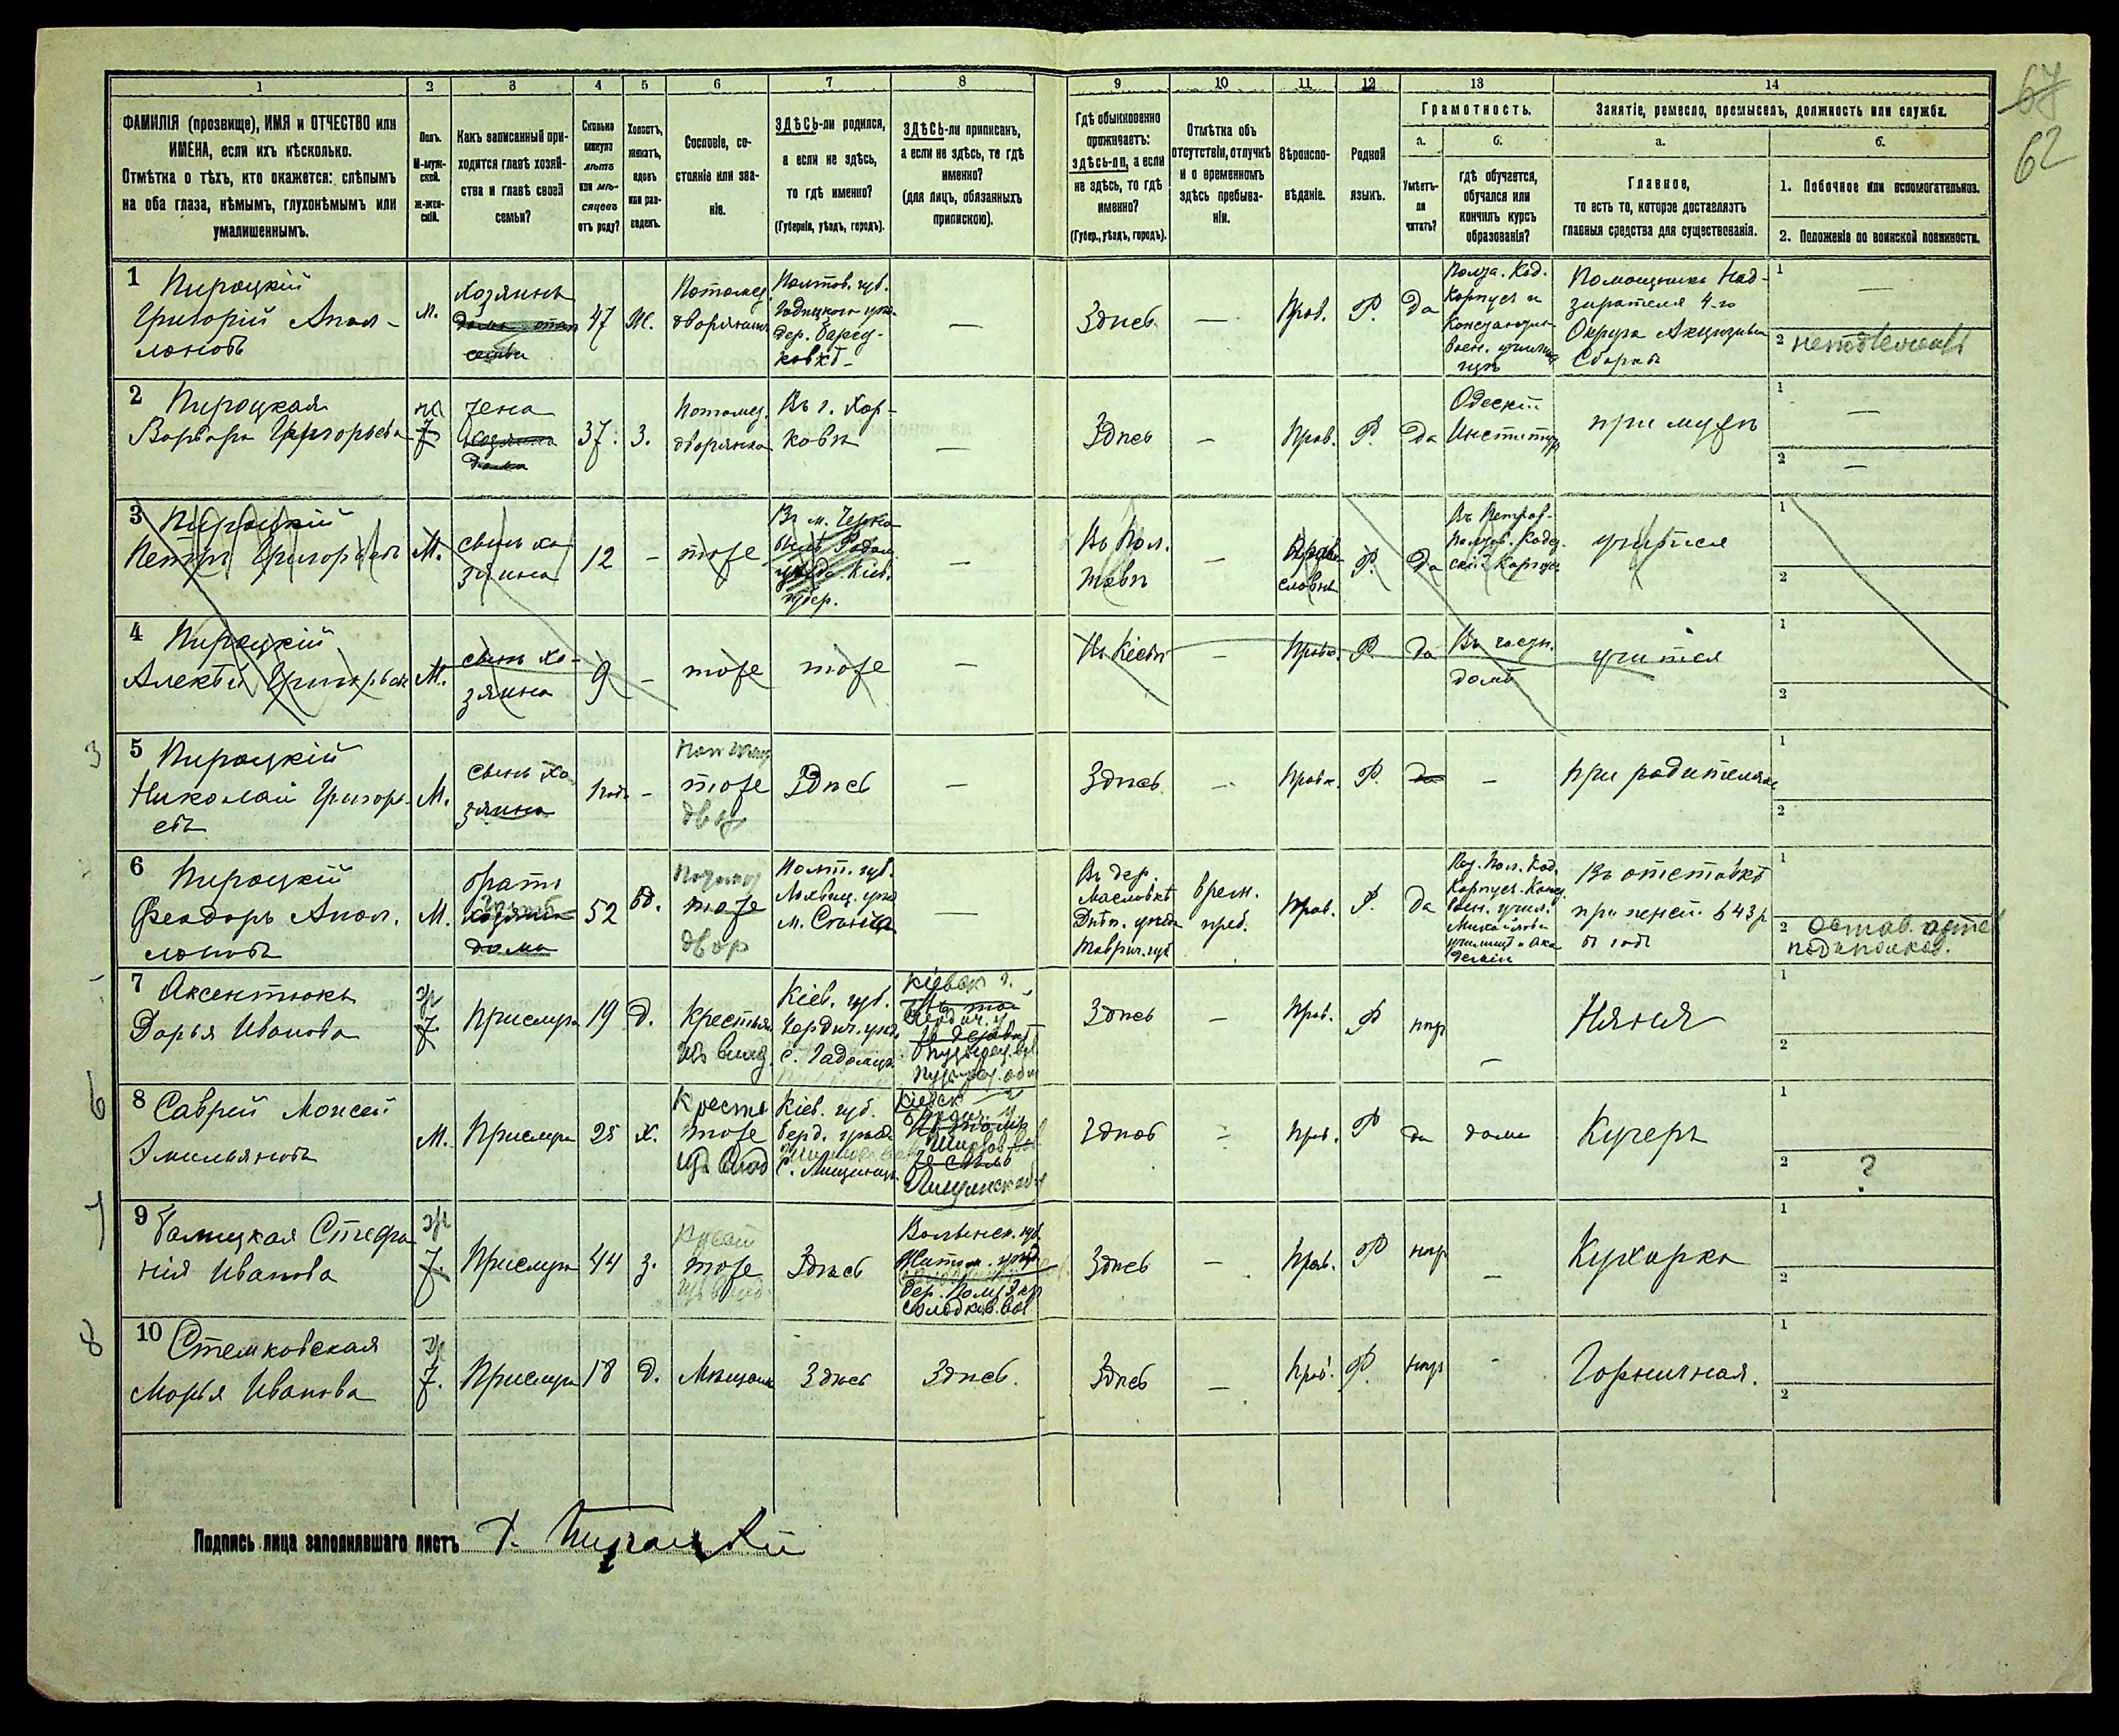 67
62
1 2 3 4 5 6 7 8 9 10 11 12 13 14
ФАМИЛІЯ (прозвище), ИМЯ и ОТЧЕСТВО или
ИМЕНА, если ихъ нѣсколько.
Отмѣтка о тѣхъ, кто окажется: слѣпымъ
на оба глаза, нѣмымъ, глухонѣмымъ или
умалишеннымъ.
Полъ.
М-муж-
ской.
ж-жен-
скій.
Какъ записанный при-
ходится главѣ хозяй-
ства и главѣ своей
семьи?
Сколько
минуло
лѣтъ
или мѣ-
сяцевъ
отъ роду?
Холостъ,
женатъ,
вдовъ
или раз-
веденъ.
Сословіе, со-
стояніе или зва-
ніе.
ЗДѢСЬ-ли родился,
а если не здѣсь,
то гдѣ именно?
(Губернія, уѣздъ, городъ).
ЗДѢСЬ-ли приписанъ,
а если не здѣсь, то гдѣ
именно?
(для лицъ, обязанныхъ
припискою).
Гдѣ обыкновенно
проживаетъ:
здѣсь-ли, а если
не здѣсь, то гдѣ
именно?
(Губер., уѣздъ, городъ).
Отмѣтка объ
отсутствіи, отлучкѣ
и о временномъ
здѣсь пребыва-
ніи.
Вѣроиспо-
вѣданіе.
Родной
языкъ.
Грамотность.
а.
Умѣетъ-
ли
читать?
б.
гдѣ обучается,
обучался или
кончилъ курсъ
образованія?
Занятіе, ремесло, промыселъ, должность или служба.
а.
Главное,
то есть то, которое доставляетъ
главныя средства для существованія.
б.
1. Побочное или вспомогательное.
2. Положеніе по воинской повинности.
1 Пироцкій
Григорій Апол-
лоновъ
М.
Хозяинъ
47
Ж.
Потомст.
дворянинъ
Полтов. губ.
Гадяцкого уѣз.
дер. Беред-
ковкѣ
—
Здѣсь
—
Прав.
Р.
да
Полта. Кад.
Корпусъ и
Констан
Воен. училищ
Помощникъ Над-
зирателя 4-го
Округа Акцизныхъ
Сборовъ
1 —
2
2 Пироцкая
Варвара Григорьева
Ж
жена
хозяина
дома
37.
З.
Потомст.
дворянка
Въ г. Харь-
ковѣ
—
Здѣсь
—
Прав.
Р.
да
Одескій
Институтъ
при мужѣ
1 —
2 —
3 Пироцкій
Петръ Григорьевъ
М.
сынъ хо-
зяина
12
—
тоже
Въ м. Черно
губер.
—
Въ Пол-
тавѣ
—
Право-
славный
Р.
да
Въ Петров-
Полтов. Кадет
скій Корпусъ
учится
1
2
4 Пироцкій
Алексѣй Григорьевъ
М.
сынъ хо-
зяина
9
—
тоже
тоже
—
Въ Кіевѣ
—
Прав.
Р.
да
Въ частн.
домѣ
учится
1
2
3
5 Пироцкій
Николай Григорь-
евъ
М.
сынъ хо-
зяина
1 годъ
—
тоже
двор
Здѣсь
—
Здѣсь
—
Прав.
Р.
да
—
при родителяхъ
1
2
6 Пироцкій
Феодоръ Апол-
лоновъ
М.
братъ
хозяина
дома
52
вд.
тоже
двор
Полт. губ.
Лохвиц. уѣз
м. Сенча
—
Въ дер.
Масловкѣ
Днѣп. уѣзда
Таврич. губ
врем.
преб.
Прав.
Р.
да
Пет. Пол. Кад.
Корпусъ. Конст
воен. учил.
Михайловск
училищ и Ака
деміи
Въ отставкѣ
при пенсіи 643 р
въ годъ
1
2 Отстав. арте
подполков.
7 Аксентюкъ
Дарья Иванова
Ж.
Прислуга
19
Д.
Крестьян
изъ влад.
Кіев. губ.
Бердич. уѣзд.
с. Гадомцы
Здѣсь
—
Прав.
Р
нѣтъ
—
Няня
1
2
6
8 Саврей Моисей
Эмильяновъ
М.
Прислуга
25
Х.
Крестя
тоже
изъ влад
Кіев. губ.
Берд. уѣзда
Здѣсь
—
Прав.
Р
да
дома
Кучеръ
1
2 ?
7
9 Галицкая Стефа-
нія Иванова
Ж.
Прислуга
44
З.
тоже
Здѣсь
Волынск. губ.
Житом. уѣзд
Здѣсь
—
Прав.
Р
нѣтъ
—
Кухарка
1
2
8
10 Стемковская
Марья Иванова
Ж.
Прислуга
18
Д.
Мѣщанка
Здѣсь
Здѣсь.
Здѣсь
—
Прав.
Р.
нѣтъ
—
Горничная.
1
2
Подпись лица заполнявшаго листъ Г. Пироцкій